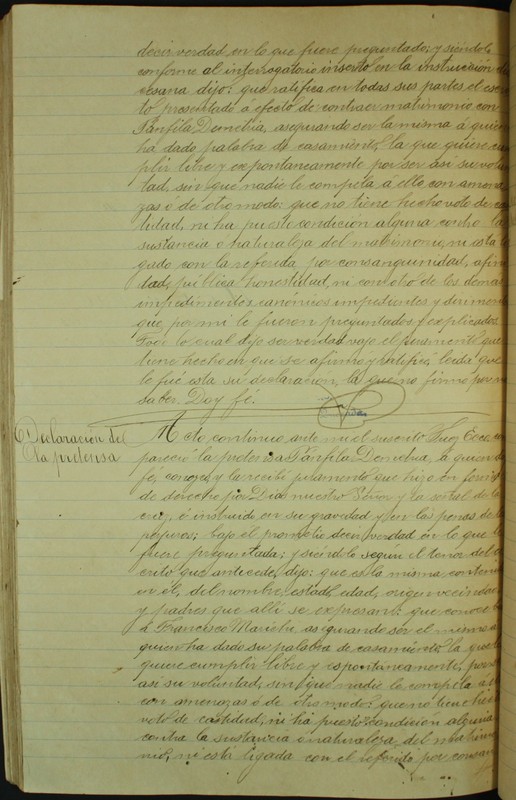 decir verdad en lo que fuere preguntado; y siéndole
conforme al interrogatorio inserto en la instrucción
cesana dijo: que ratifica en todas sus partes el escri
to presentado á efecto de contraer matrimonio con
Pánfila Demetria, asegurando ser la misma á quien
ha dado palabra de casamiento, la que quiere cum
plir libre y expontaneamente por ser así su volun
tad, sin que nadie le compela á ello con amena
zas ó de otro modo: que no tiene hecho voto de cas
tidad, ni ha puesto condición alguna contra la
sustancia o naturaleza del matrimonio, ni esta li
gado con la referida por consanguinidad, afini
dad, publica honestidad, ni con otro de los demas
impedimentos canónicos impedientes y dirimentes
que por mi le fueron preguntados y explicados.
Todo lo cual dijo ser verdad vajo el juramento que
tiene hecho en que se afirmo y ratificó, leida que
le fué esta su declaracion, la que no firmo por no
saber. Doy fé.
Declaracion de
la pretensa
Acto continuo ante mi el suscrito Juez Ecco. com
pareció la pretensa Pánfila Demetria, á quien doy
fé, conozco, y le recibi juramento que hizo en forma
de derecho por Dios nuestro Señor y la señal de la
cruz, é instruida en su gravedad y en las penas de los
perjuros; bajo el prometio decir verdad en lo que le
fuere preguntada; y siéndolo según el tenor del es
crito que antecede, dijo: que es la misma contenida
en él, del nombre, estado, edad, origen vecindad
y padres que allí se expresan: que conoce
á Francisco asegurando ser el mismo á
quien ha dado su palabra de casamiento la que
quiere cumplir libre y espontaneamente, por ser
así su voluntad, sin que nadie le compela a ello
con amenazas ó de otro modo: que no tiene hecho
voto de castidad, ni ha puesto condición alguna
contra la sustancia ó naturaleza del matrimo
nio, ni está ligada con el referido por consan